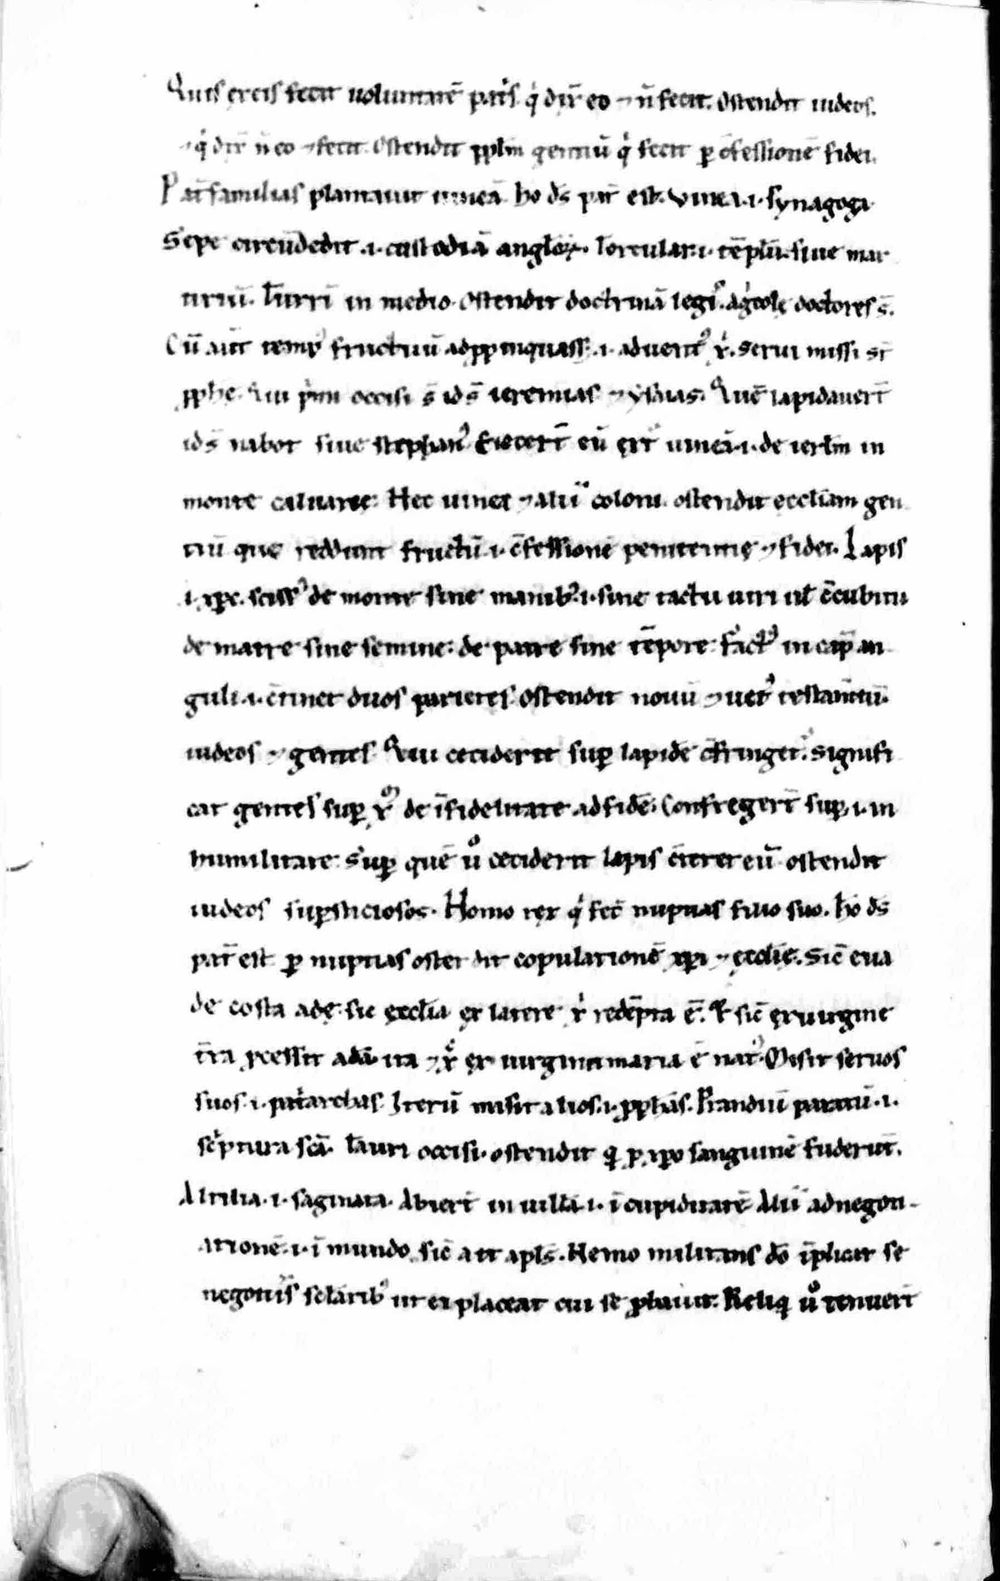 Quis ex eis fecit uoluntatē pat̄s. q̇ dix̄ eo ⁊ n̄ fecit. Ostendit iudeos.
⁊ q̇ dix̄ n̄ eo ⁊ fecit. Ostendit ppl̄m gentiū q̇ fecit p̲ ɔfessionē fidei.
Pat̄familias plantauit uineā. ho ds̄ pat̄ est. Vinea .i. synagoga
Sepe circūdedit .i. custodiā angloꝝ. Torcular .i. tēplū. siue mar
tiriū. Turrī in medio. Ostendit doctrinā legis. agͥcole doctores s̄.
Cū aūt tempꝰ fructuū adpp̲inquass; .i. aduentꝰ xͥ. Serui missi st̄
pphe. Qui pͥmi occisi s̄ id ē ieremias ⁊ ysaias. Quē lapidauert̄
id ē nabot siue stephanꝰ. Eiecert̄ eū ext̄ uineā .i. de ierlm̄ in
monte caluarie. Hec uinea ⁊ alii coloni. ostendit eccl̄iam gen
tiū que reddunt fructū .i. ɔ̄fessionē penitentię ⁊ fidei. Lapis
.i. xp̄c. scissꝰ de monte sine manibꝰ .i. sine tactu uiri ul̄ ɔ̄cubitu
de matre sine semine. de patre sine tēpore. fact̄ꝰ in cap̄ an
guli .i. ɔ̄tinet duos parietes. Ostendit nouū ⁊ uetꝰ testam̄tū.
iudeos ⁊ gentes. Qui ceciderit sup̲ lapidē ɔ̄fringet᷑. Signifi
cat gentes sup̲ xͦ de īfidelitate ad fidē. Confregert̄ sup̲ .i. in
humilitate. Sup̲ quē uͦ ceciderit lapis ɔ̄teret eū. ostendit
iudeos sup̲sticiosos. Homo rex q̇ fec̄ nuptias filio suo. hō ds̄
pat̄ est p̲ nuptias ostendit copulationē xp̄i ⁊ ęccl̄ię. Sic̄ eua
de costa adę. sic ęccl̄ia ex latere xͥ redēpta ē. Et sic̄ ex uirgine
t̄ra ꝓcessit adā. ita ⁊ xͨ ex uirgine maria ē natꝰ. Misit seruos
suos .i. patͥarchas. Iterū misit alios .i. pph̄as. Prandiū paratū .i.
scͥptura scā. Tauri occisi. ostendit qͥ p̲ xp̄o sanguinē fuderūt.
Altilia .i. saginata. Abiert̄ in uillā .i. ī cupiditatē. Alii ad negoti
ationē .i. ī mundo. sic̄ ait apl̄s. Nemo militans dō īplicat se
negotiis sclaribꝰ ut ei placeat cui se ꝓbauit. Reliqͥ uͦ tenuert̄